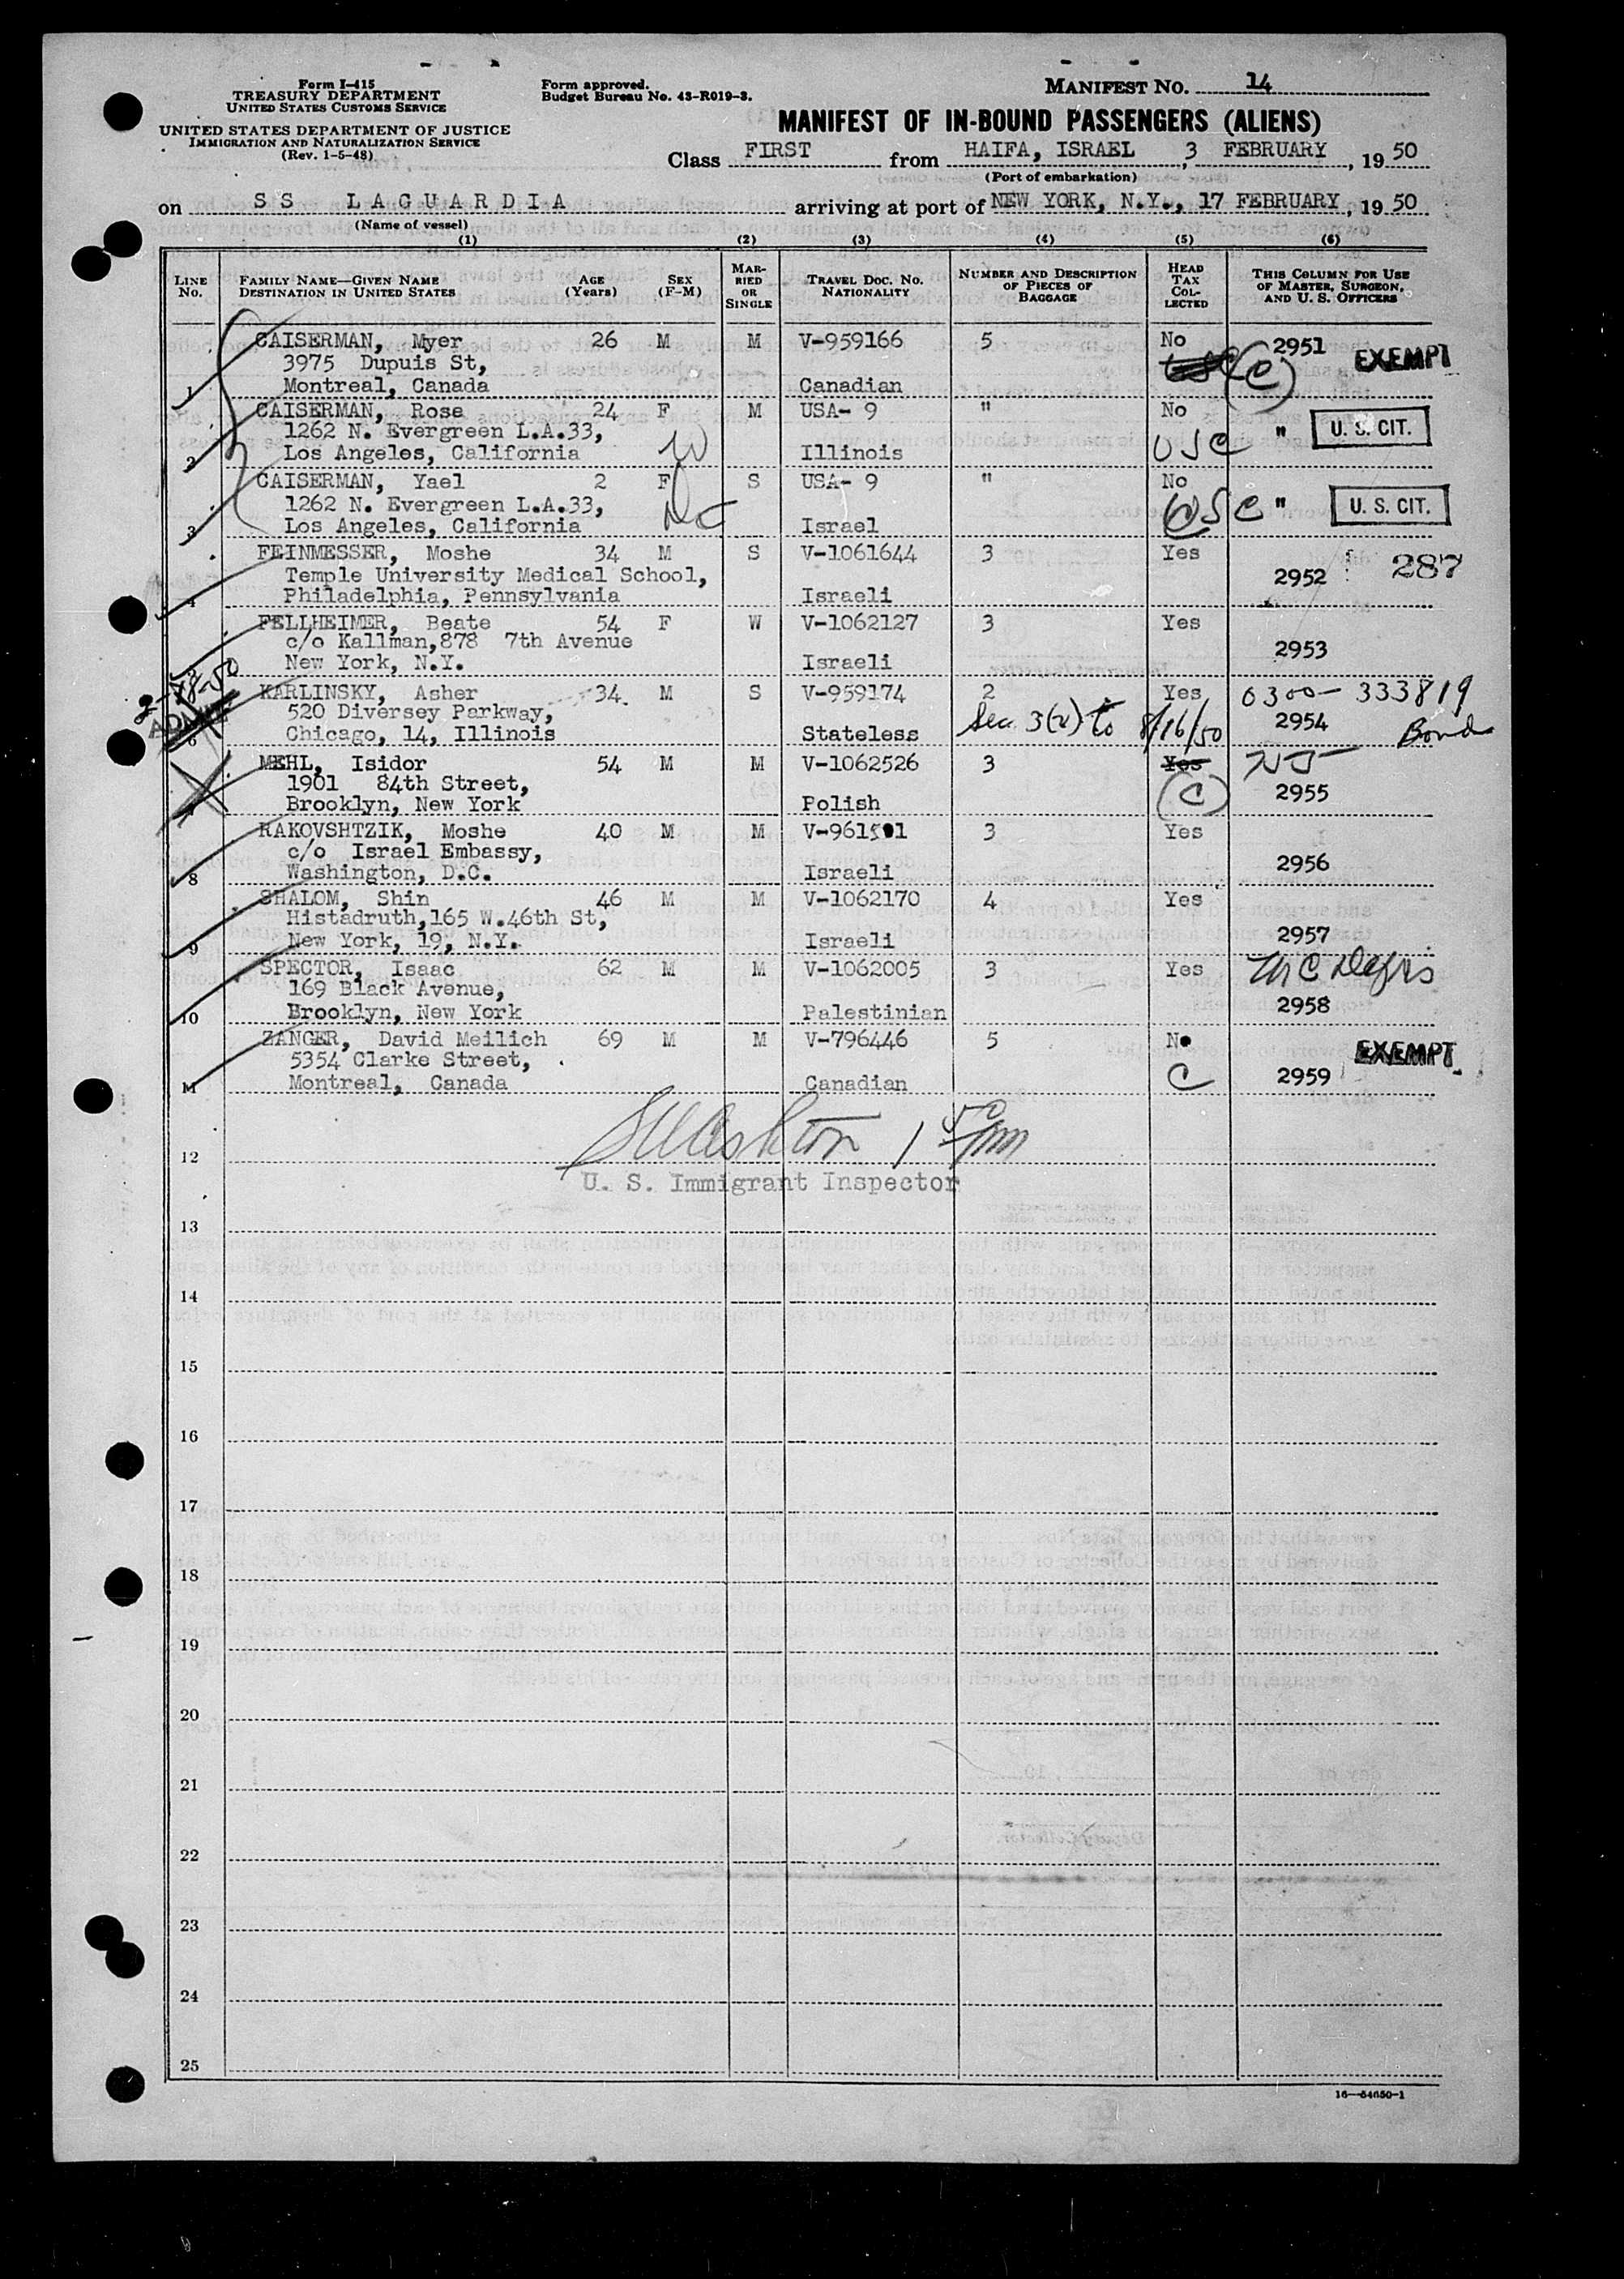 Form I-415
TREASURY DEPARTMENT
UNITED STATES CUSTOMS SERVICE
UNITED STATES DEPARTMENT OF JUSTICE
IMMIGRATION AND NATURALIZATION SERVICE
(Rev. 1-5-48)
Form approved.
Budget Bureau No. 43-R019-3.
MANIFEST NO. 14
MANIFEST OF IN-BOUND PASSENGERS (ALIENS)
Class FIRST from HAIFA, ISRAEL, 3 FEBRUARY, 1950
(Port of embarkation)
on SS LAGUARDIA arriving at port of NEW YORK, N.Y., 17 FEBRUARY, 1950
(Name of vessel)
(1) (2) (3) (4) (5) (6)
LINE NO. FAMILY NAME—GIVEN NAME DESTINATION IN UNITED STATES AGE (Years) SEX (F-M) MARRIED OR SINGLE TRAVEL DOC. NO. NATIONALITY NUMBER AND DESCRIPTION OF PIECES OF BAGGAGE HEAD TAX COLLECTED THIS COLUMN FOR USE OF MASTER, SURGEON, AND U. S. OFFICERS
CAISERMAN, Myer 26 M M V-959166 5 No 2951 EXEMPT
3975 Dupuis St, (C)
1 Montreal, Canada Canadian
CAISERMAN, Rose 24 F M USA- 9 " No
1262 N. Evergreen L.A.33, W USC " U. S. CIT.
2 Los Angeles, California Illinois
CAISERMAN, Yael 2 F S USA- 9 " No
1262 N. Evergreen L.A.33, USC " U. S. CIT.
3 Los Angeles, California Israel
FEINMESSER, Moshe 34 M S V-1061644 3 Yes 287
Temple University Medical School, 2952
4 Philadelphia, Pennsylvania Israeli
FELLHEIMER, Beate 54 F W V-1062127 3 Yes
c/o Kallman,878 7th Avenue 2953
New York, N.Y. Israeli
2-28-50 KARLINSKY, Asher 34 M S V-959174 2 Yes 0300-333819
520 Diversey Parkway, Sec 3(2) to 8/16/50 2954 Bond
6 Chicago, 14, Illinois Stateless
MEHL, Isidor 54 M M V-1062526 3 Yes
1901 84th Street, (C) 2955
Brooklyn, New York Polish
RAKOVSHTZIK, Moshe 40 M M V-961501 3 Yes
c/o Israel Embassy, 2956
8 Washington, D.C. Israeli
SHALOM, Shin 46 M M V-1062170 4 Yes
Histadruth,165 W.46th St, 2957
9 New York, 19, N.Y. Israeli
SPECTOR, Isaac 62 M M V-1062005 3 Yes
169 Black Avenue, 2958
10 Brooklyn, New York Palestinian
ZANGER, David Meilich 69 M M V-796446 5 No EXEMPT
5354 Clarke Street, C 2959
11 Montreal, Canada Canadian
12
U. S. Immigrant Inspector
13
14
15
16
17
18
19
20
21
22
23
24
25
16—54650-1